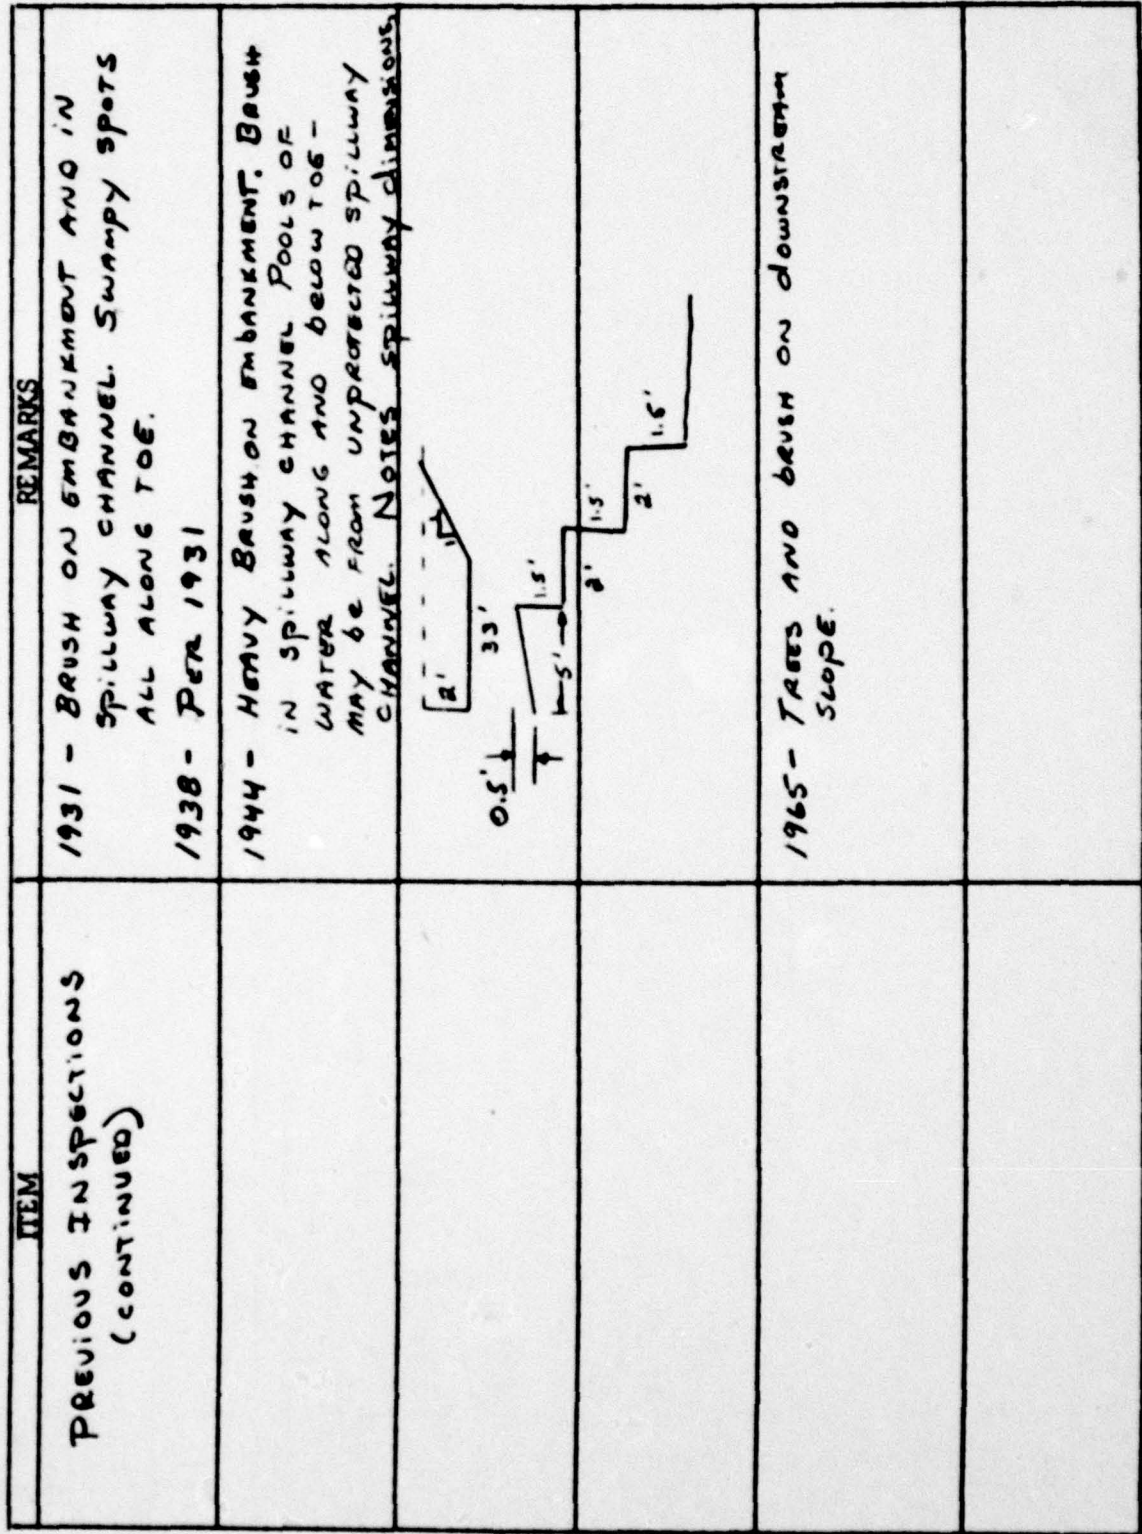 ITEM
REMARKS
PREVIOUS INSPECTIONS
(CONTINUED)
1931 - BRUSH ON EMBANKMENT AND IN
SPILLWAY CHANNEL. SWAMPY SPOTS
ALL ALONG TOE.
1938 - PER 1931
1944 - HEAVY BRUSH ON EMBANKMENT. BRUSH
IN SPILLWAY CHANNEL POOLS OF
WATER ALONG AND BELOW TOE -
MAY BE FROM UNPROTECTED SPILLWAY
CHANNEL. NOTES SPILLWAY DIMENSIONS.
2'
33'
1
0.5'
5'
1.5'
2'
1.5'
2'
1.5'
1965 - TREES AND BRUSH ON DOWNSTREAM
SLOPE.